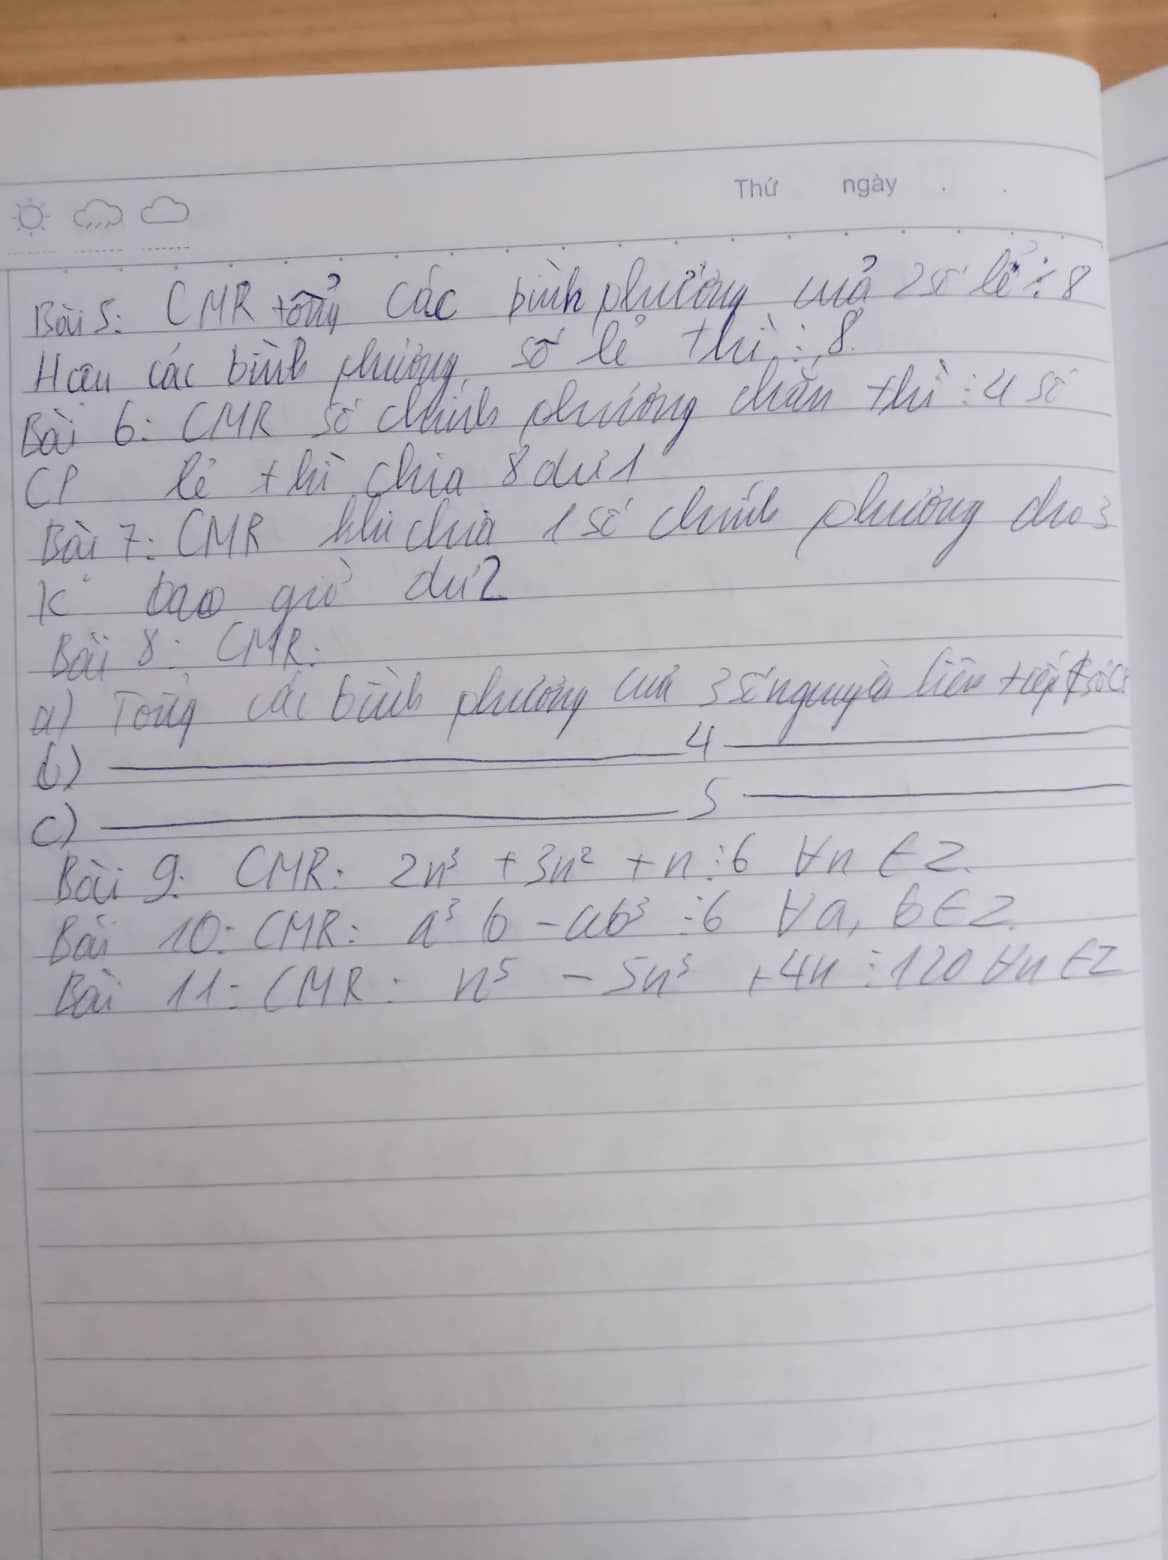 Thứ ngày
Bài 5: CMR tổng các bình phương của 2 số lẻ ⋮ 8
Hiệu các bình phương số lẻ thì ⋮ 8.
Bài 6: CMR số chính phương chẵn thì ⋮ 4 số
CP lẻ thì chia 8 dư 1
Bài 7: CMR khi chia 1 số chính phương cho 3
K bao giờ dư 2
Bài 8: CMR:
a) Tổng các bình phương của 3 số nguyên liên tiếp
b) 4
c) 5
Bài 9: CMR: 2n³ + 3n² + n ⋮ 6 ∀n ∈ Z.
Bài 10: CMR: a³b - ab³ ⋮ 6 ∀a, b ∈ Z.
Bài 11: CMR: n⁵ - 5n³ + 4n ⋮ 120 ∀n ∈ Z